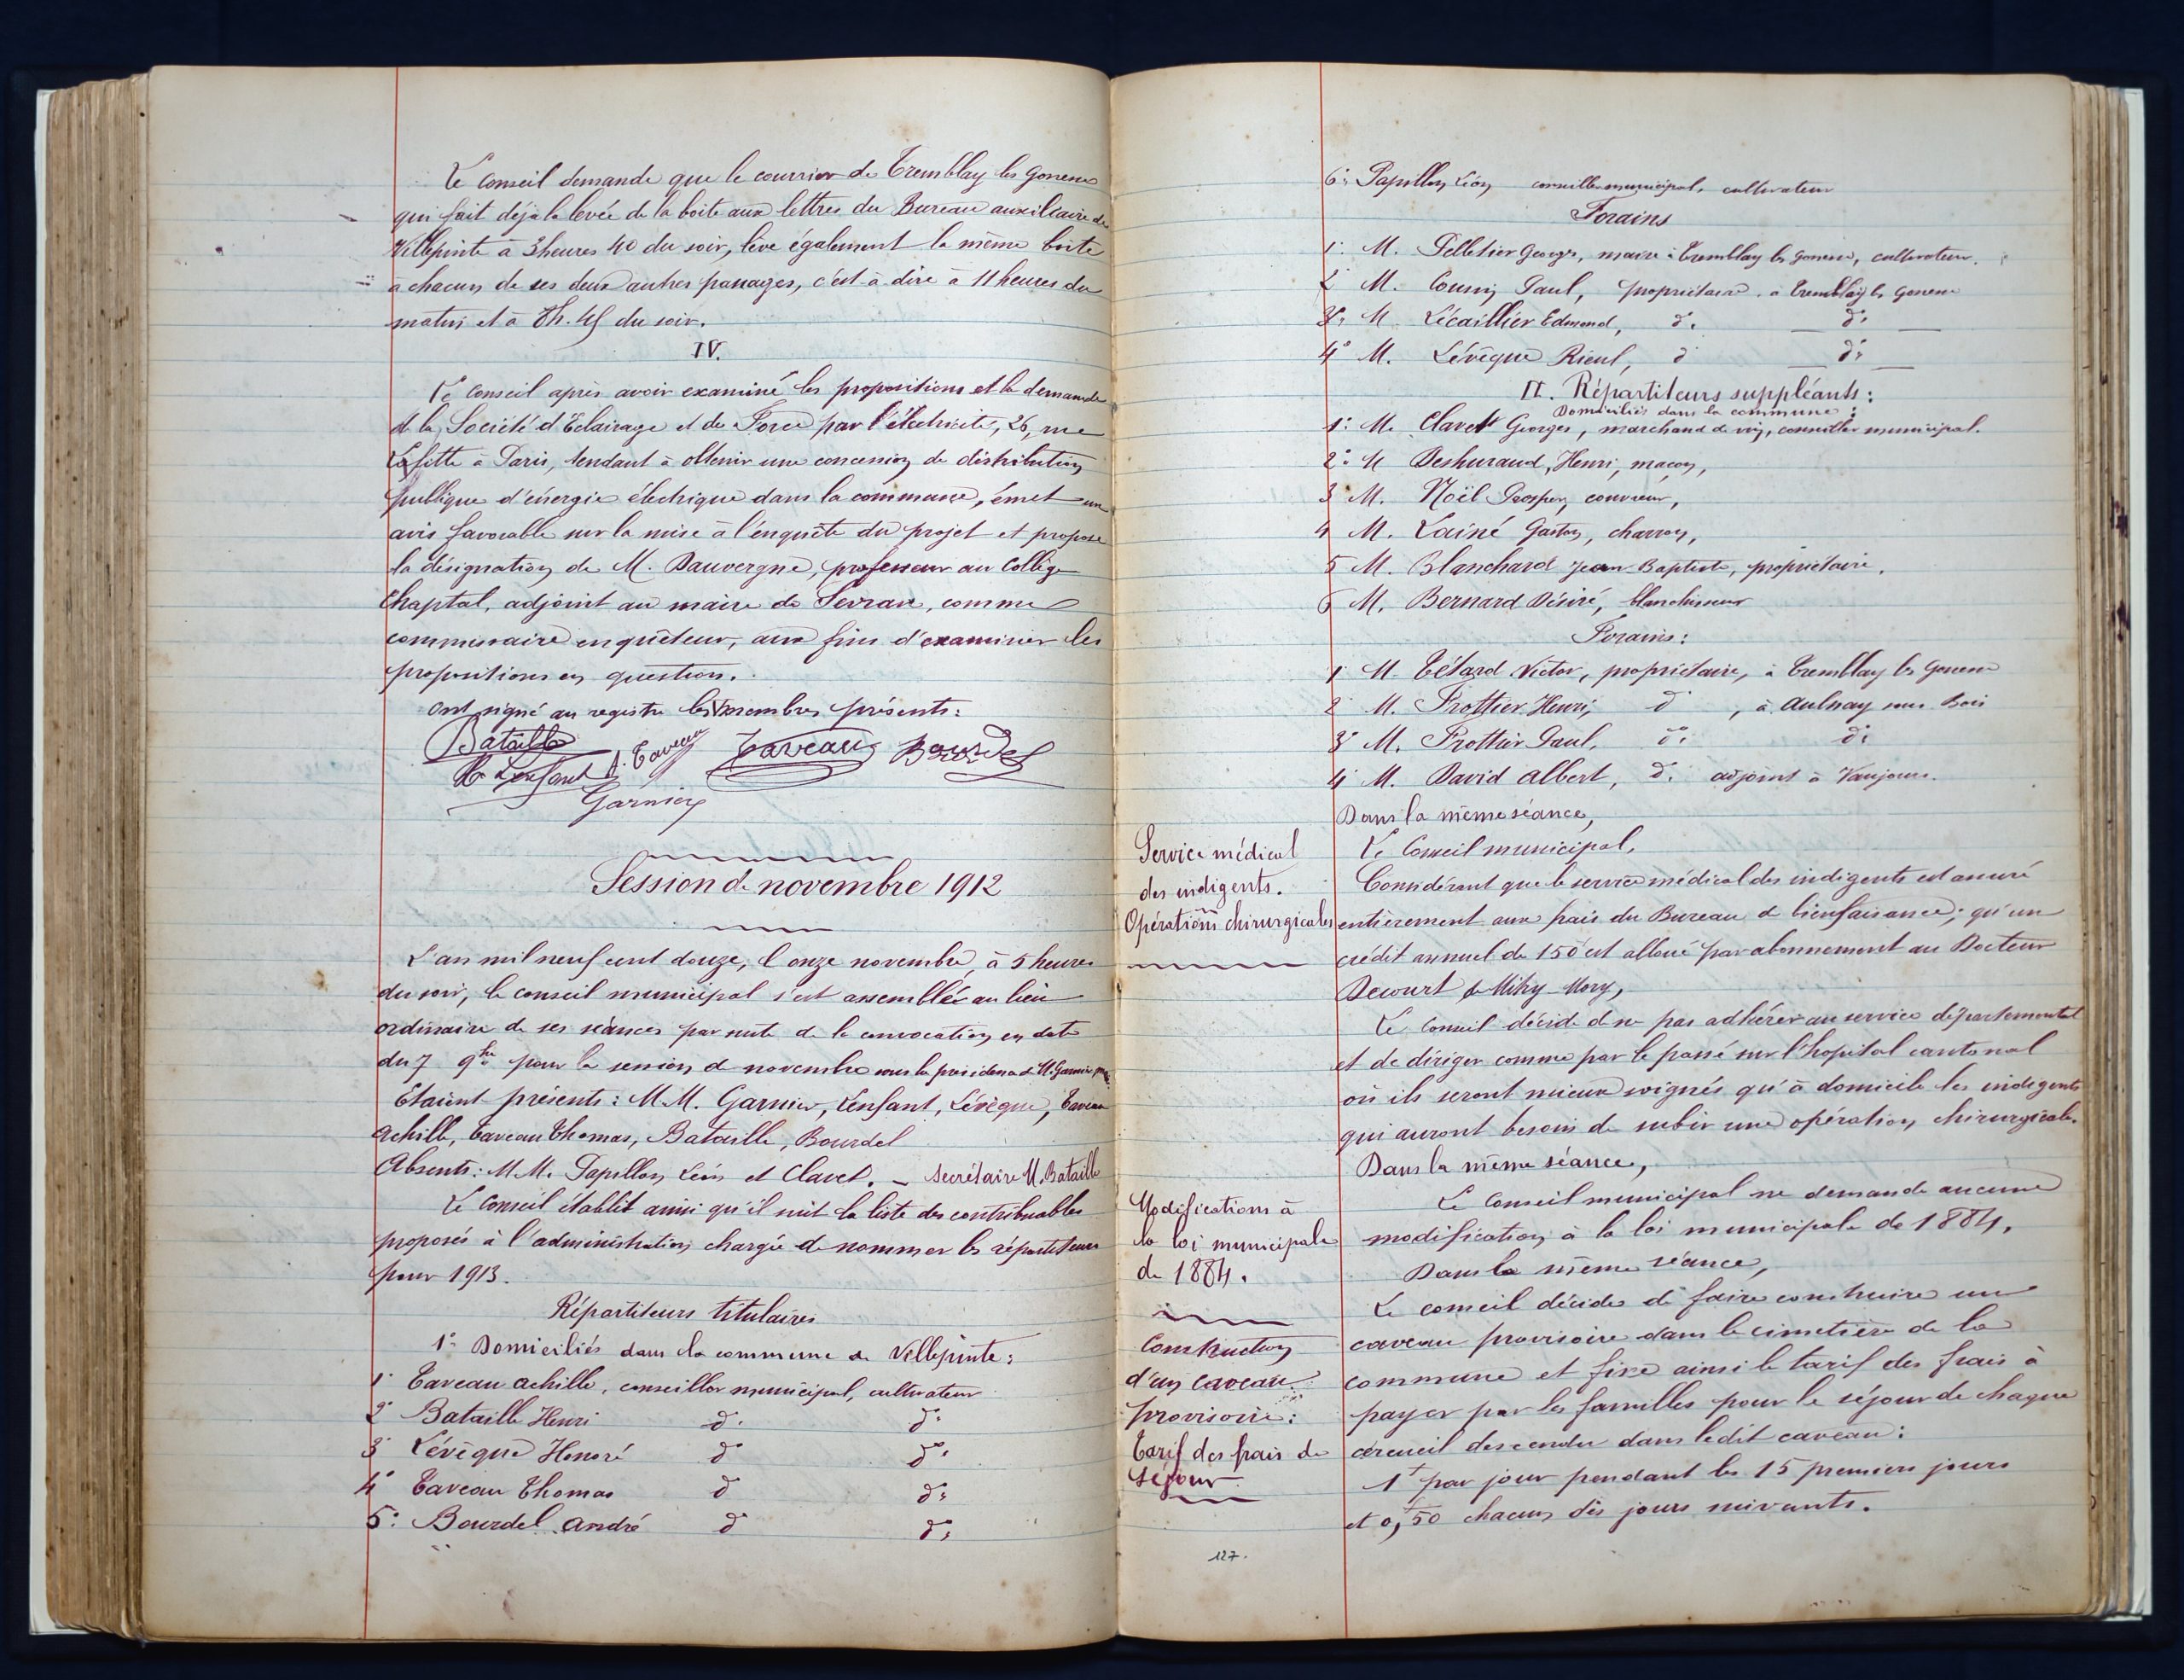 Le Conseil demande que le courrier de Tremblay les Gonesse
qui fait déjà la levée de la boite aux lettres du Bureau auxiliaire de
Villepinte à 3 heures 40 du soir, lève également la même boite
à chacun de ses deux autres passages, c'est à dire à 11 heures du
matin et à 8h.45 du soir.
IV.
Le Conseil après avoir examiné les propositions et la demande
de la Société d'Eclairage et de Force par l'électricité, 26, rue
Lafitte à Paris, tendant à obtenir une concession de distribution
publique d'énergie électrique dans la commune, émet un
avis favorable sur la mise à l'enquête du projet et propose
la désignation de M. Dauvergne, professeur au Collège
Chaptal, adjoint au maire de Sevran, comme
commissaire enquêteur, aux fins d'examiner les
propositions en question.
Ont signé au registre les membres présents:
Bataille
A. Taveau Taveau Bourdel
Lenfant
Garnier
Session de novembre 1912
L'an mil neuf cent douze, l onze novembre, à 5 heures
du soir, le conseil municipal s'est assemblé au lieu
ordinaire de ses séances par suite de la convocation en date
du 7 9bre pour la session de novembre sous la présidence de M. Garnier
Etaient présents: M.M. Garnier, Lenfant, Lévêque, Taveau
Achille, Taveau Thomas, Bataille, Bourdel
Absents: M.M. Papillon Léon et Clavel. – Secrétaire M. Bataille
Le Conseil établit ainsi qu'il suit la liste des contribuables
proposés à l'administration chargée de nommer les répartiteurs
pour 1913.
Répartiteurs titulaires
1° Domiciliés dans la commune de Villepinte:
1° Taveau Achille, conseiller municipal, cultivateur
2° Bataille Henri d° d°
3° Lévêque Honoré d° d°
4° Taveau Thomas d° d°
5° Bourdel André d° d°
6° Papillon Léon conseiller municipal, cultivateur
Forains
1° M. Pelletier Georges, maire à Tremblay les Gonesse, cultivateur.
2° M. Cousin Paul, propriétaire à Tremblay les Gonesse
3° M. Lécaillier Edmond, d° d°
4° M. Lévêque Rieul, d° d°
II. Répartiteurs suppléants:
Domiciliés dans la commune:
1° M. Clavel Georges, marchand de vin, conseiller municipal.
2° M Deshuraud, Henri, maçon,
3 M. Noël Prosper, couvreur,
4 M. Lainé Gaston, charron,
5 M. Blanchard Jean-Baptiste, propriétaire.
6 M. Bernard Désiré, blanchisseur
Forains:
1° M. Tétard Victor, propriétaire, à Tremblay les Gonesse
2° M. Frottier Henri, d° , à Aulnay sous Bois
3° M. Frottier Paul, d° d°
4° M. David Albert, d° adjoint à Vaujours.
Dans la même séance,
Service médical
des indigents.
Opérations chirurgicales
Le Conseil municipal,
Considérant que le service médical des indigents est assuré
entièrement aux frais du Bureau de bienfaisance; qu'un
crédit annuel de 150f est alloué par abonnement au Docteur
Decourt de Mitry-Mory,
Le Conseil décide de ne pas adhérer au service départemental
et de diriger comme par le passé sur l'hopital cantonal
où ils seront mieux soignés qu'à domicile les indigents
qui auront besoin de subir une opération chirurgicale.
Dans la même séance,
Modifications à
la loi municipale
de 1884.
Le Conseil municipal ne demande aucune
modification à la loi municipale de 1884.
Dans la même séance,
Construction
d'un caveau
provisoire:
Tarif des frais de
séjour
Le conseil décide de faire construire un
caveau provisoire dans le cimetière de la
commune et fixe ainsi le tarif des frais à
payer par les familles pour le séjour de chaque
cercueil descendu dans ledit caveau:
1f par jour pendant les 15 premiers jours
et 0f,50 chacun des jours suivants.
127.